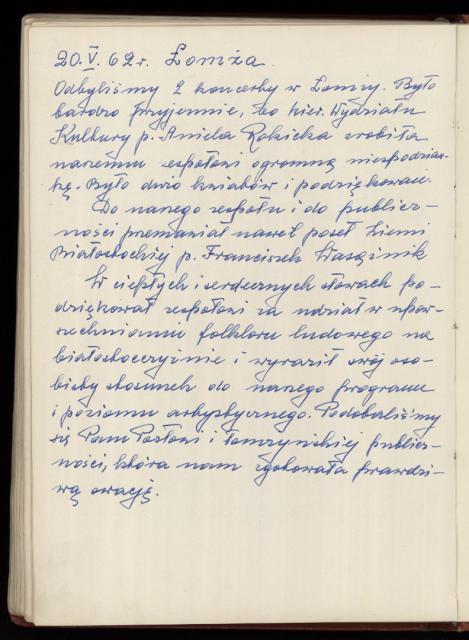 20.V.62r. Łomża.
Odbyliśmy 2 koncerty w Łomży. Było
bardzo przyjemnie, bo kier. Wydziału
Kultury p. Aniela Rokicka zrobiła
naszemu zespołowi ogromną niespodzian-
kę. Było dużo kwiatów i podziękowań.
Do naszego zespołu i do publicz-
ności przemawiał nawet poseł Ziemi
Białostockiej p. Franciszek
W ciepłych i serdecznych słowach po-
dziękował zespołowi za udział w upow-
szechnianiu folkloru ludowego na
białostocczyźnie i wyraził swój oso-
bisty stosunek do naszego programu
i poziomu artystycznego. Podobaliśmy
się Panu Posłowi i łomżyńskiej publicz-
ności, która nam zgotowała prawdzi-
wą owację.